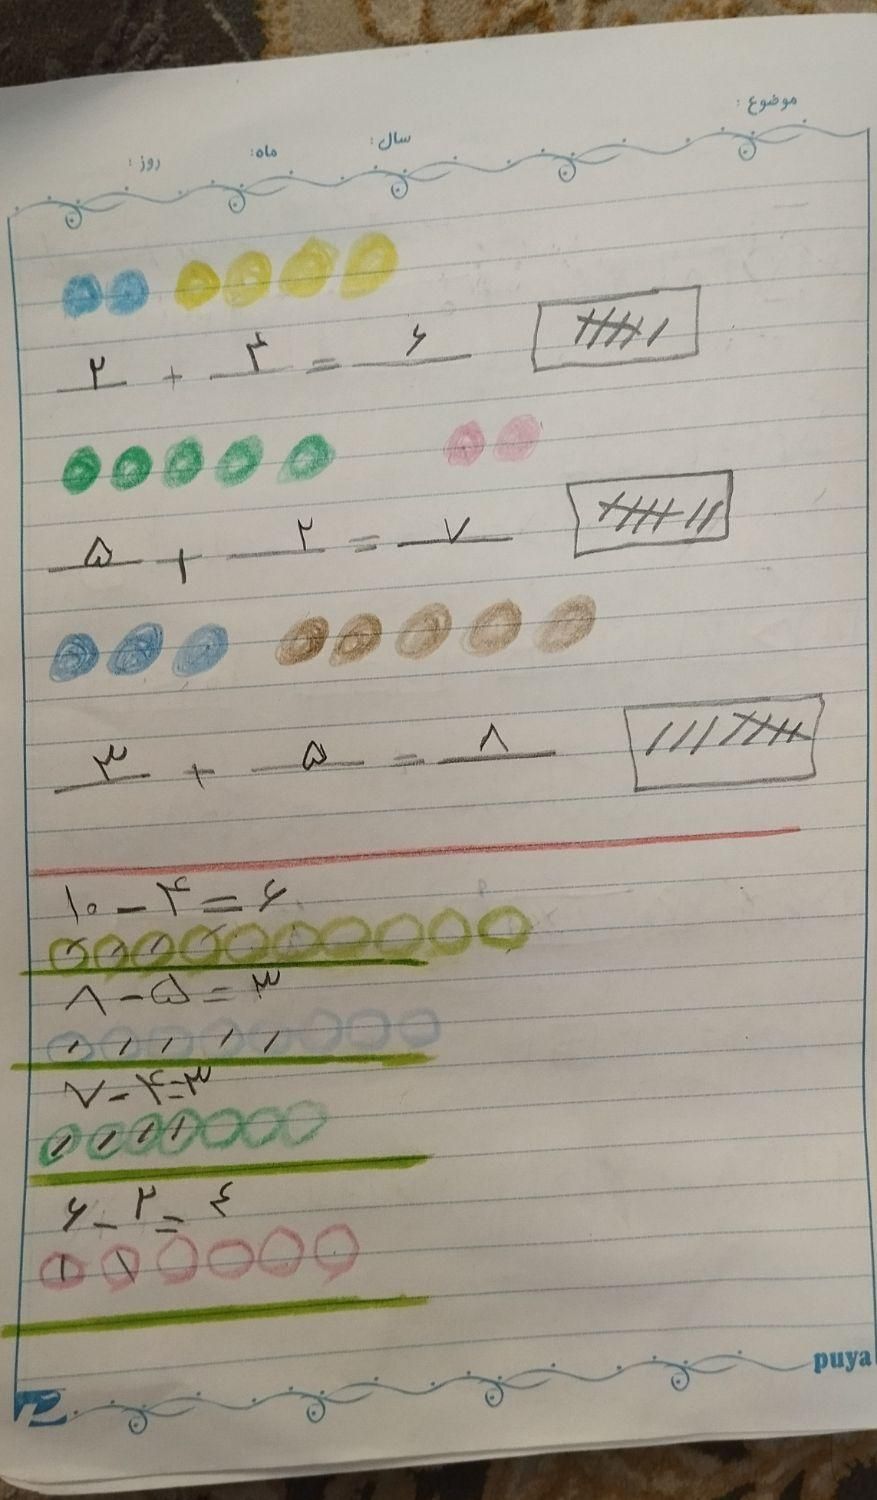 موضوع: سال: ماه: روز:
۲ + ۴ = ۶
۵ + ۲ = ۷
۳ + ۵ = ۸
۱۰ - ۴ = ۶
۸ - ۵ = ۳
۷ - ۴ = ۳
۶ - ۲ = ۴
puya